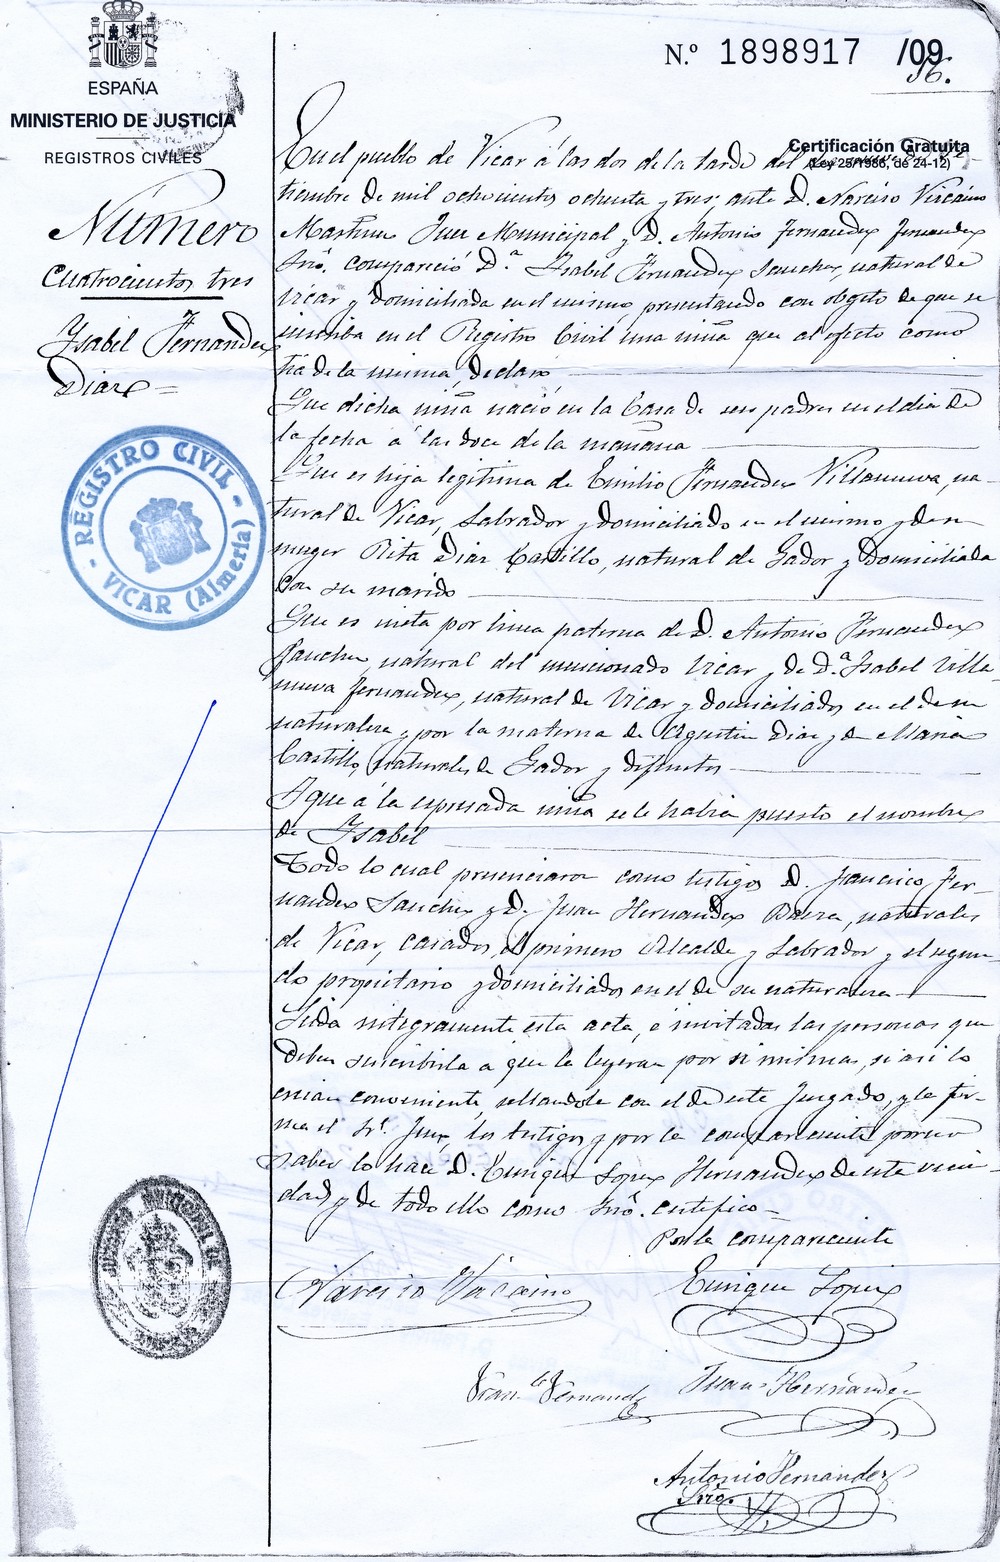 N.º 1898917 /09
56.
ESPAÑA
MINISTERIO DE JUSTICIA
REGISTROS CIVILES
Certificación Gratuita
(Ley 25/1986, de 24-12)
Número
Cuatrocientos tres
Ysabel Fernandez
Diaz =
REGISTRO CIVIL - VICAR (Almería) -
En el pueblo de Vicar á las dos de la tarde del
tiembre de mil ochocientos ochenta y tres, ante D. Narciso Viscaino
Martinez Juez Municipal y D. Antonio Fernandez Fernandez
Srio. compareció D.ª Ysabel Fernandez Sanchez, natural de
Vicar y domiciliada en el mismo, presentando con obgeto de que se
inscriba en el Registro Civil una niña que al efecto como
tia de la misma, declaró
Que dicha niña nació en la Casa de sus padres en el dia de
la fecha á las doce de la mañana
Que es hija legitima de Emilio Fernandez Villanueva, na-
tural de Vicar, Labrador y domiciliado en el mismo y de su
muger Rita Diaz Castillo, natural de Gador y domiciliada
con su marido
Que es nieta por linea paterna de D. Antonio Fernandez
Sanchez, natural del mencionado Vicar y de D.ª Ysabel Villa-
nueva Fernandez, natural de Vicar y domiciliados en el de su
naturaleza y por la materna de Agustin Diaz y de Maria
Castillo, naturales de Gador y difuntos
Y que á la espresada niña se le habia puesto el nombre
de Ysabel
Todo lo cual presenciaron como testigos D. Francisco Fer-
nandez Sanchez y D. Juan Hernandez Baeza, naturales
de Vicar, casados, el primero Alcalde y Labrador y el segun-
do propietario y domiciliados en el de su naturaleza
Leida integramente esta acta, é invitadas las personas que
deben suscribirla a que la leyeran por si mismas, si asi lo
creian conveniente, sellandole con el de este Juzgado, y la fir-
ma el Sr. Juez, los testigos y por la compareciente por no
saber lo hace D. Enrique Lopez Hernandez de este vecin-
dad y de todo ello como Srio. certifico
Por la compareciente
Narciso Viscaino
Enrique Lopez
Fran.co Fernandz
Juan Hernandez
Antonio Fernandez
Srio.